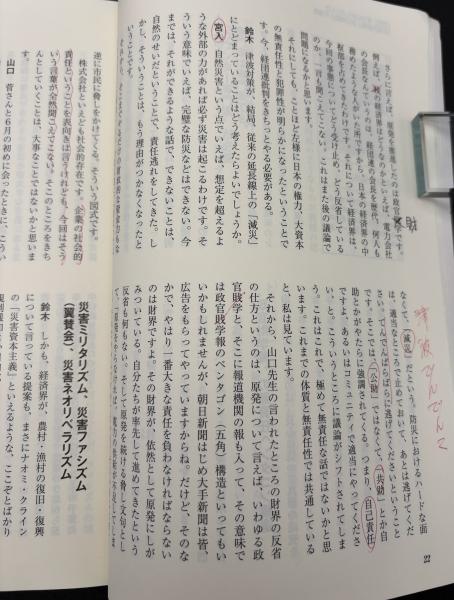 さらに言えば、原発を推進したのは政官財学です。
の会長というのは、経団連の会長を歴代、何人も
務めたような人がいる所ですから、日本の経済界の中
枢部を占めてきたわけです。それについて経済界は、
今回の事態についてどう受け止め、どう反省している
のか、一言も聞こえてこない。これはまた後の議論で
問題になるかと思います。
それにしても、これほど左様に日本の権力、大資本
の無責任性と犯罪性が明らかになったということで
す。今、経団連批判をきちっとやる必要がある。
鈴木 津波対策が、結局、従来の延長線上の「減災」
にとどまっていることはどう考えたらよいでしょうか。
宮入 自然災害という点でいえば、想定を超えるよ
うな外部の力があれば必ず災害は起こるわけです。そ
ういう意味でいえば、完璧な防災などはできない。今
までは、それができるような話で、できないことは、
自然のせいだということで、責任逃れをしてきた。し
かし、そういうことは、もう理由がつかなくなったと
いうことです。
財
なく、「減災」だという。防災におけるハードな面
は、適当なところで止めておいて、あとは逃げてくだ
さい。てんでんばらばらに逃げてくださいということ
です。そこでは、「公助」ではなくて「共助」とか自
助とかがやたらに強調されてくる。つまり、自己責任
ですよ、あるいはコミュニティで適当にやってくださ
い、と。こういうところに議論がシフトされてしま
う。これはこれで、極めて無責任な話ではないかと思
います。これまでの体質と無責任性では共通している
と、私は見ています。
それから、山口先生の言われたところの財界の反省
の仕方というのは、原発について言えば、いわゆる政
官財学と、そこに報道機関の報も入って、その意味で
は政官財学報のペンタゴン（五角）構造といってもい
いかもしれませんが、朝日新聞はじめ大手新聞は皆、
広告をもらってやっていますからね。だけど、そのな
かで、やはり一番大きな責任を負わなければならない
のは財界ですよ。その財界が、依然として原発にしが
みついている。自分たちが率先して進めてきたという
反省も何もない。そして原発を続ける脅し文句として
22
逆に市民に脅しをかけてくる。そういう図式です。
株式会社といえども社会的存在です。企業の社会的
責任ということを表向きは言うけれども、今回はそう
いう言葉が全然聞こえてこない。そこのところをきち
んとしていくことは、大事なことではないかと思いま
す。
山口 菅さんとも6月の初めに会ったときに、こうい
災害ミリタリズム、災害ファシズム
（翼賛会）、災害ネオリベラリズム
鈴木 しかも、経済界が、農村・漁村の復旧・復興
について言っている提案も、まさにナオミ・クライン
の「災害資本主義」といえるような、ここぞとばかり